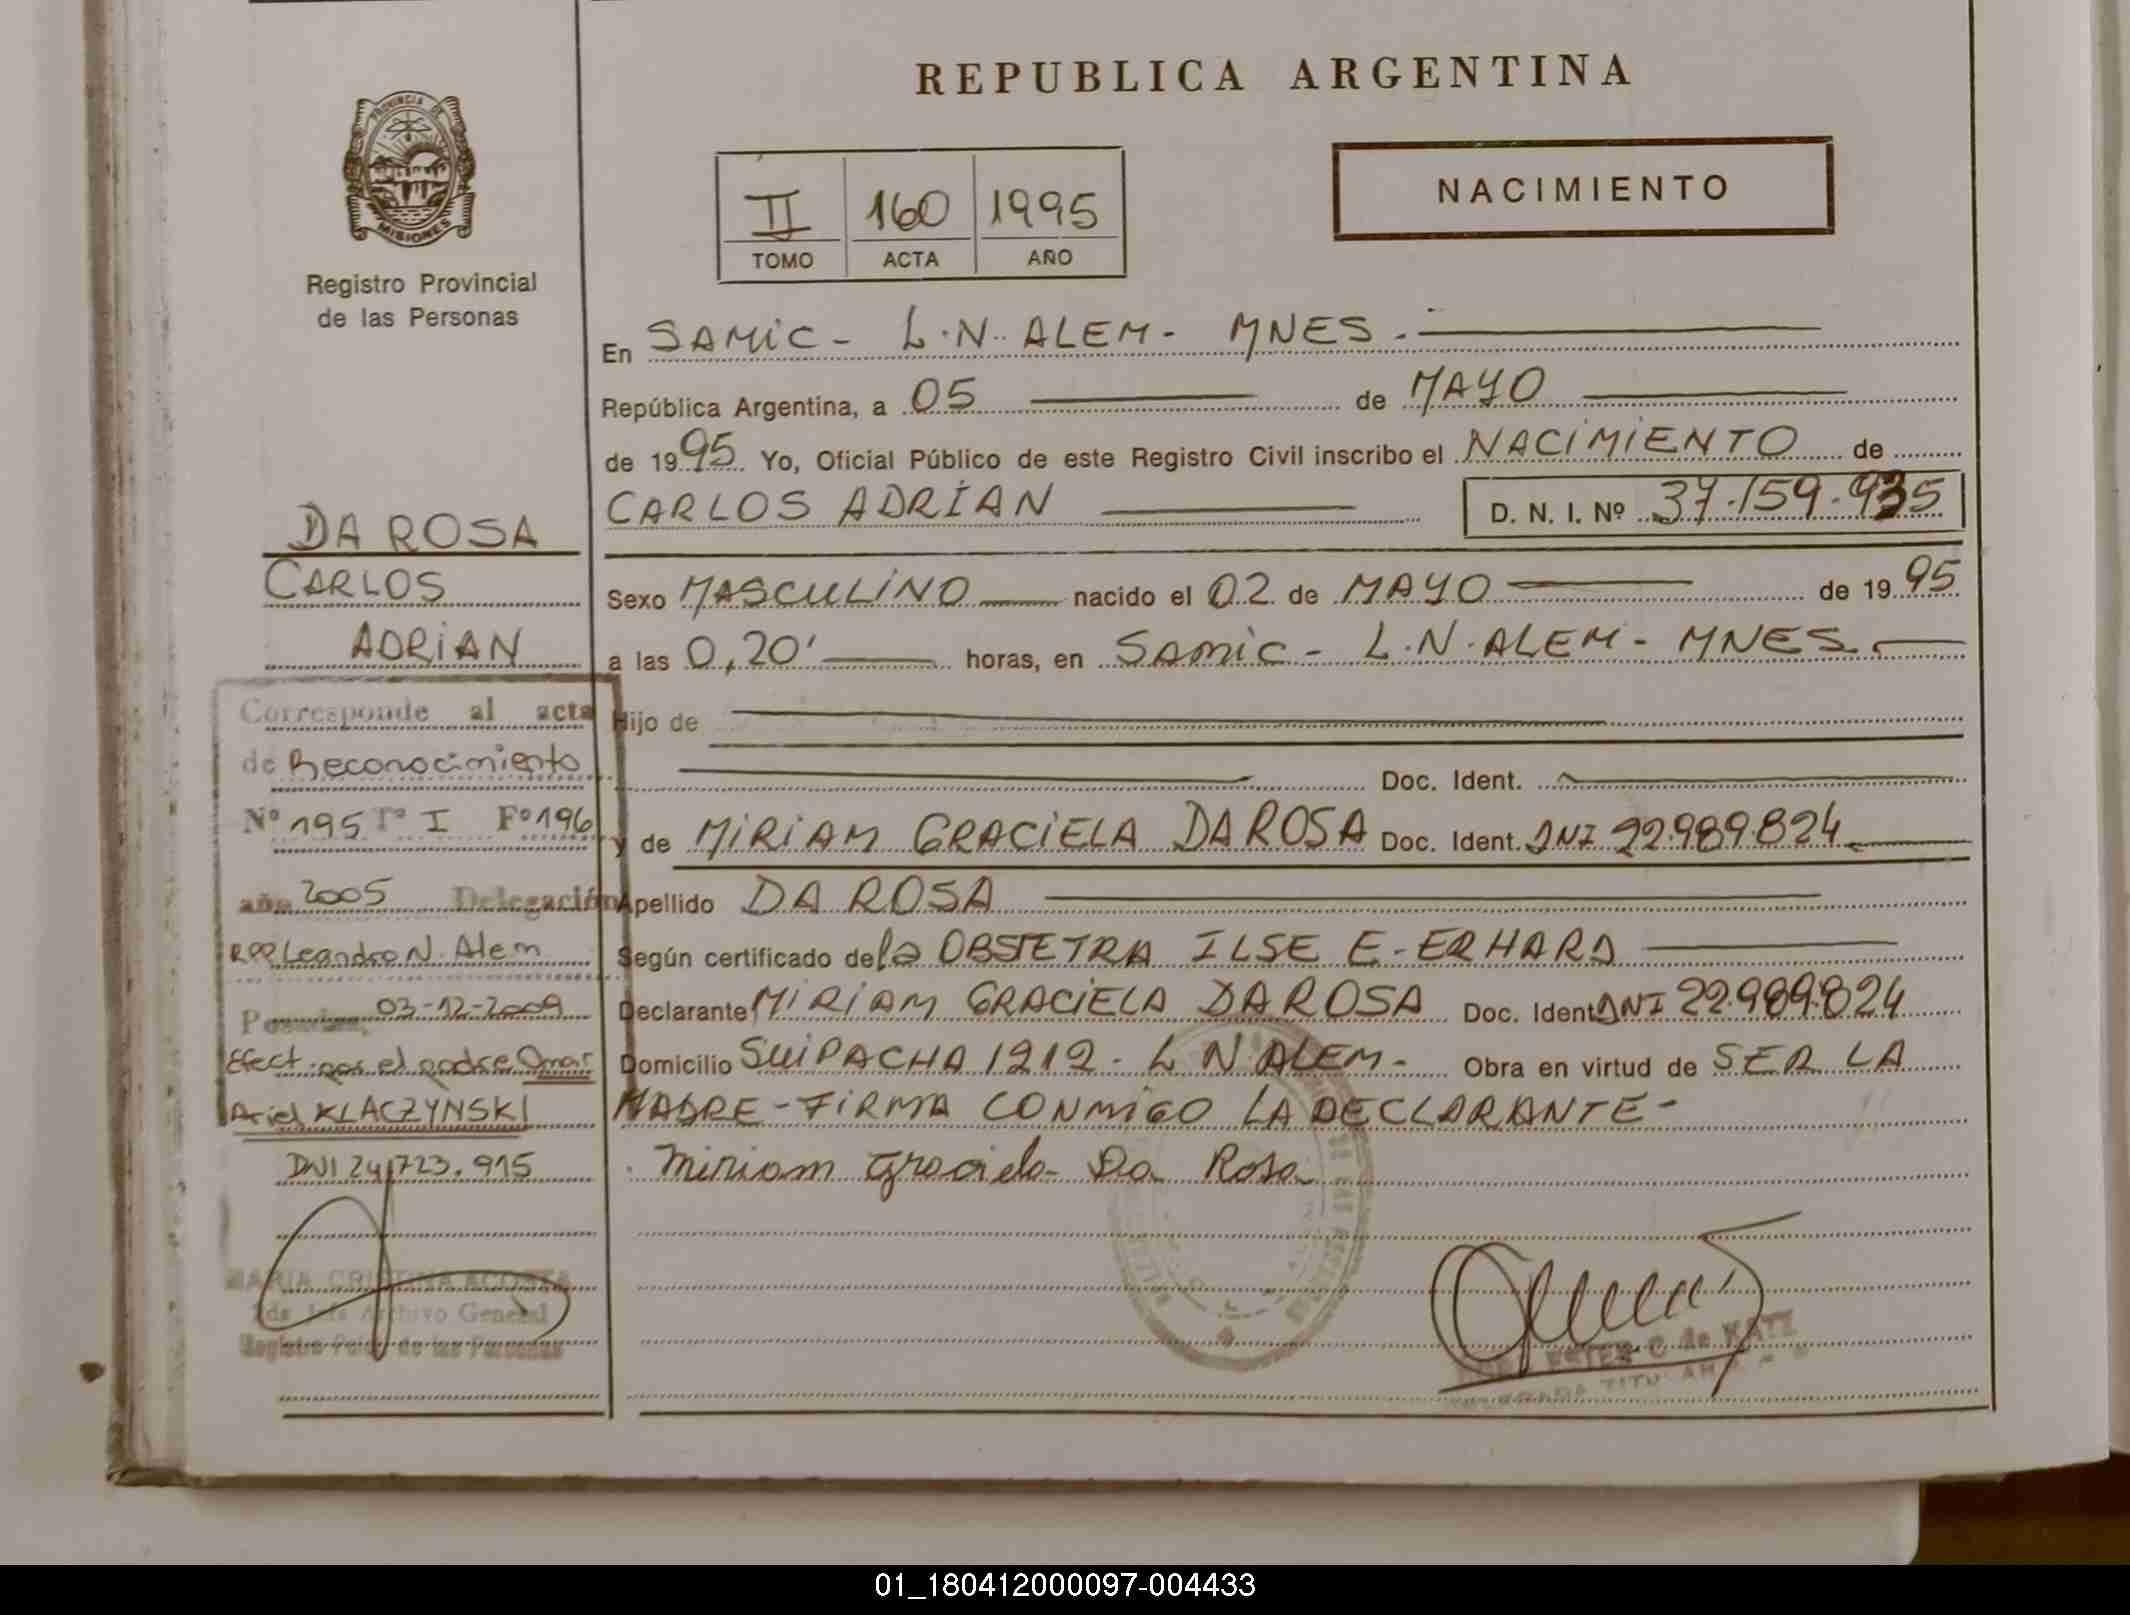 REPUBLICA ARGENTINA
PROVINCIA DE
MISIONES
Registro Provincial
de las Personas
NACIMIENTO
II 160 1995
TOMO ACTA AÑO
En SAMIC - L.N. ALEM - MNES -
República Argentina, a 05 de MAYO
de 1995. Yo, Oficial Público de este Registro Civil inscribo el NACIMIENTO de
CARLOS ADRIAN D. N. I. Nº 37.159.935
Sexo MASCULINO nacido el 02 de MAYO de 1995
a las 0,20' horas, en SAMIC - L.N. ALEM - MNES -
Hijo de
Doc. Ident.
y de MIRIAM GRACIELA DA ROSA Doc. Ident. DNI 22.989.824
Apellido DA ROSA
Según certificado de la OBSTETRA ILSE E. ERHARD
Declarante MIRIAM GRACIELA DA ROSA Doc. Ident. DNI 22.989.824
Domicilio SUIPACHA 1212 - L N ALEM - Obra en virtud de SER LA
MADRE - FIRMA CONMIGO LA DECLARANTE -
Miriam Graciela Da Rosa
ESTER C de KATZ
DA ROSA
CARLOS
ADRIAN
Corresponde al acta
de Reconocimiento
Nº 195 Tº I Fº 196
año 2005 Delegación
RPP Leandro N. Alem
Posadas, 03-12-2009
Efect. por el padre Omar
Ariel KLACZYNSKI
DNI 24.723.915
MARIA CRISTINA ACOSTA
Archivo General
de las Personas
01_180412000097-004433